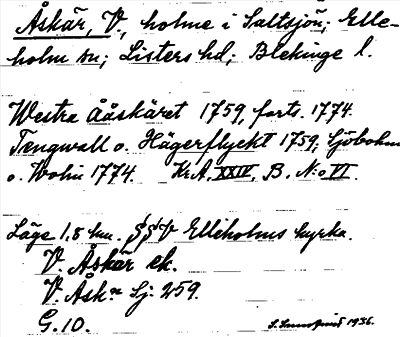 Åskär, V., holme i Saltsjön; Elle-
holm sn; Listers hd; Blekinge l.
Westra Ååskäret 1759, forts. 1774.
Tengwall o. Hägerflyckt 1759; Sjöbohm
o. Wolin 1774. Kr.A. XXIV. B. N:o VI.
Läge 1,8 km. Elleholms kyrka.
V. Åskär ek.
V. Åsk:n Sj. 259.
G. 10.
1936.